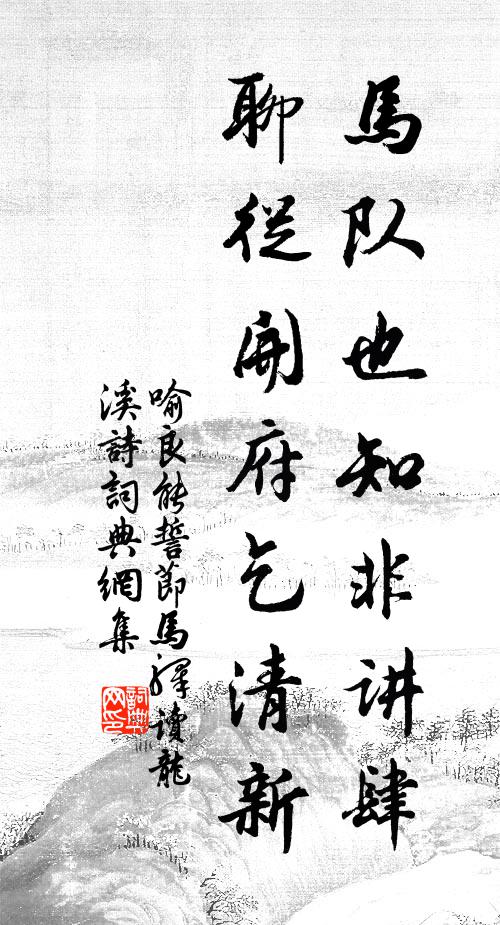 馬队也知非讲肆
聊從開府乞清新
喻良能誓節馬驛讀龍
溪詩詞典網集
詞典网印